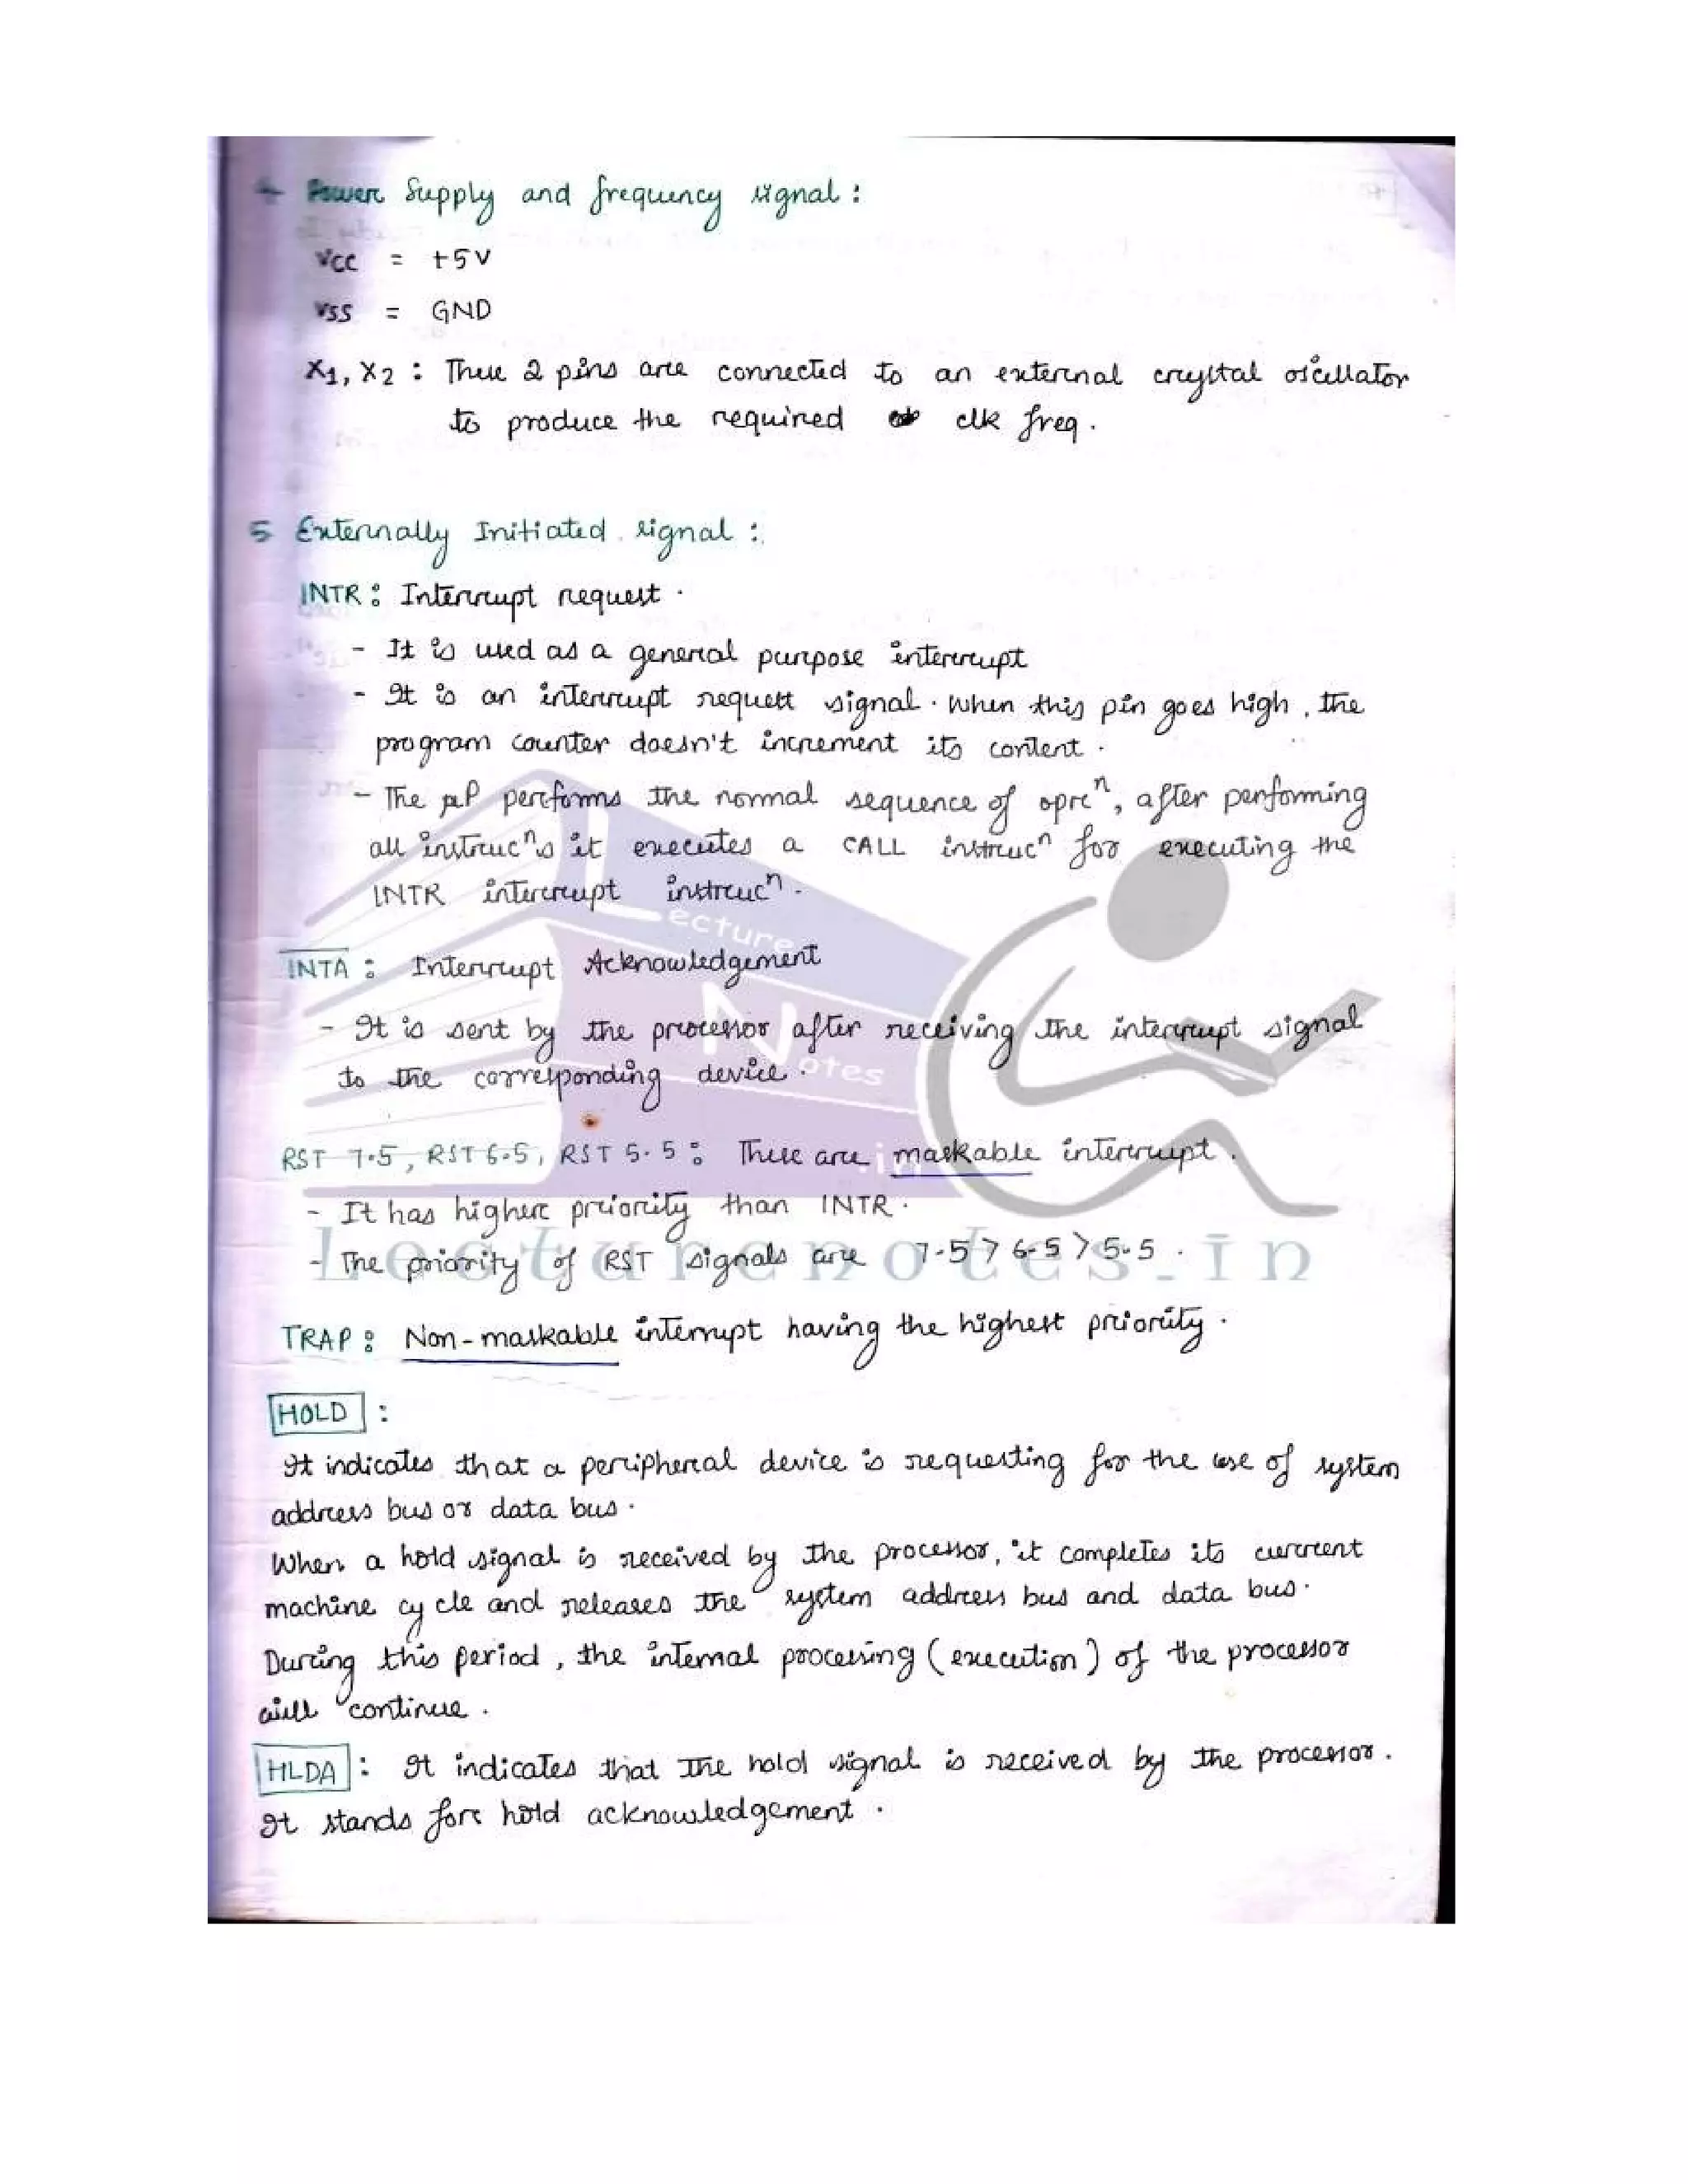 4 Power Supply and frequency signal :
Vcc = +5V
Vss = GND
X1, X2 : These 2 pins are connected to an external crystal oscillator
to produce the required clk freq.
5 Externally Initiated signal :
INTR : Interrupt request.
- It is used as a general purpose interrupt
- It is an interrupt request signal. When this pin goes high, the
program counter doesn't increment its content.
- The μP performs the normal sequence of oprⁿ, after performing
all instrucⁿs it executes a CALL instrucⁿ for executing the
INTR interrupt instrucⁿ.
I̅N̅T̅A̅ : Interrupt Acknowledgement
- It is sent by the processor after receiving the interrupt signal
to the corresponding device.
RST 7.5, RST 6.5, RST 5.5 : These are maskable interrupt.
- It has higher priority than INTR.
- The priority of RST signals are 7.5 > 6.5 > 5.5.
TRAP : Non-maskable interrupt having the highest priority.
HOLD :
It indicates that a peripheral device is requesting for the use of system
address bus or data bus.
When a hold signal is received by the processor, it completes its current
machine cycle and releases the system address bus and data bus.
During this period, the internal processing (execution) of the processor
will continue.
HLDA : It indicates that the hold signal is received by the processor.
It stands for hold acknowledgement.
Lecture
Notes
.in
Lecturenotes.in